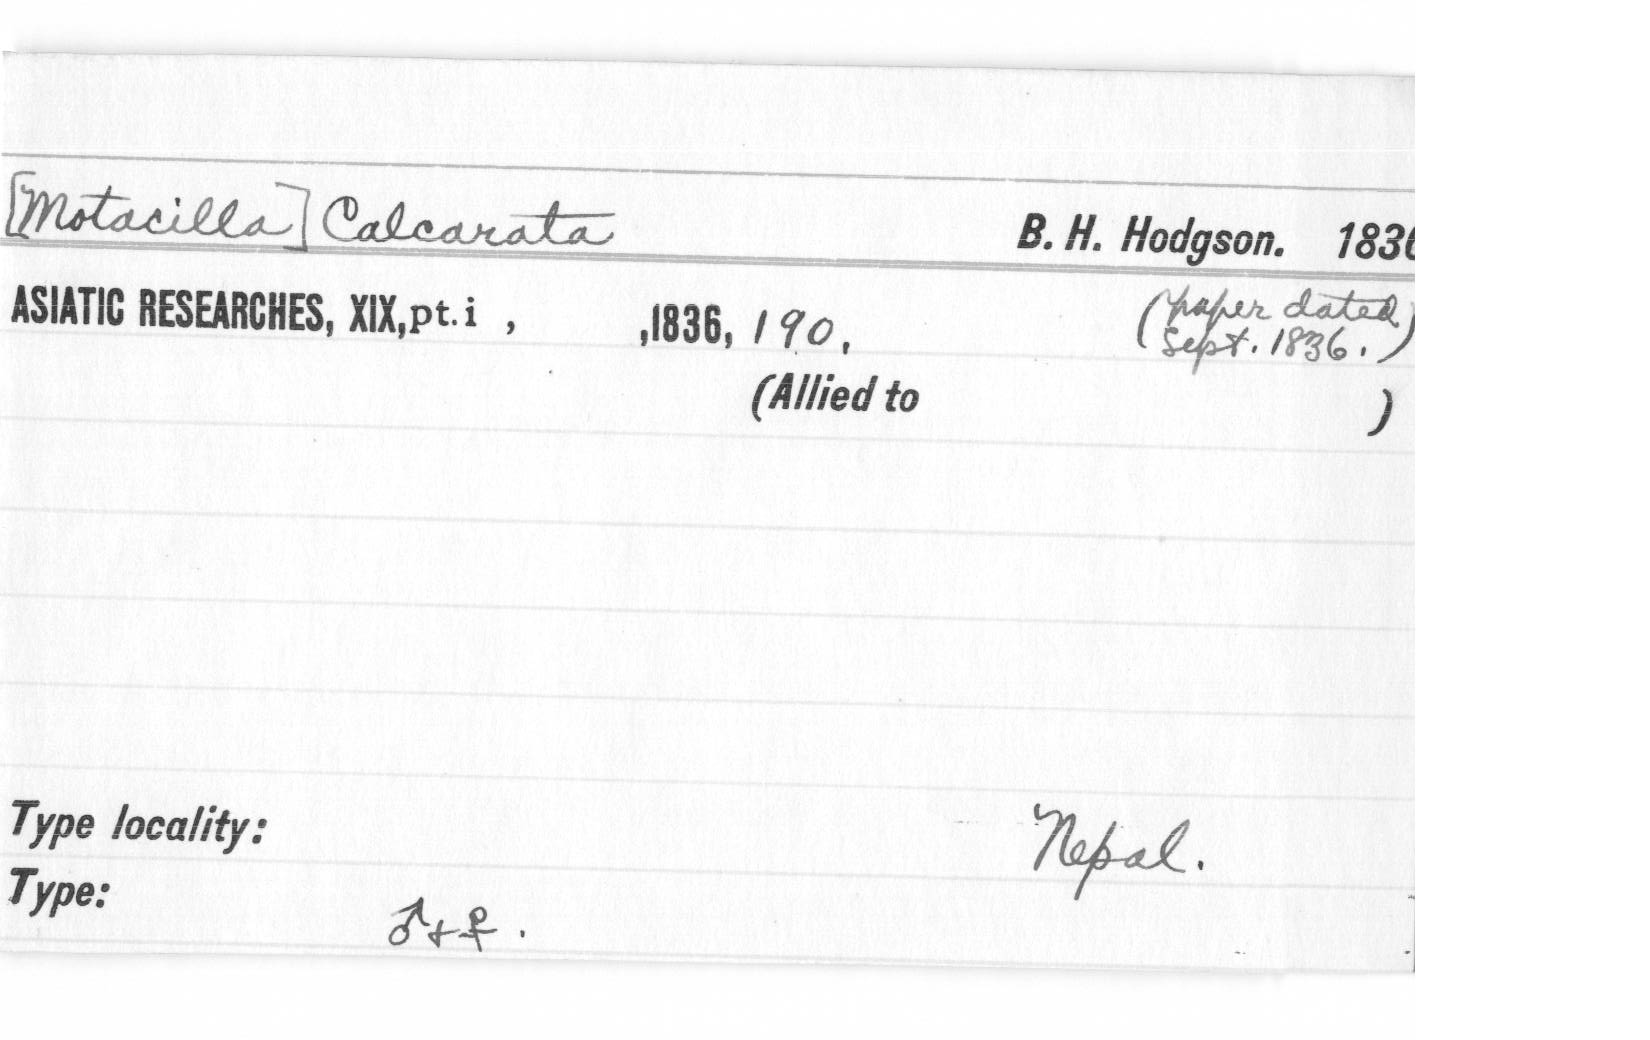 [Motacilla] Calcarata B. H. Hodgson. 1836
ASIATIC RESEARCHES, XIX,pt.i , ,1836, 190. (paper dated
Sept. 1836.)
(Allied to )
Type locality: Nepal.
Type: ♂+♀.